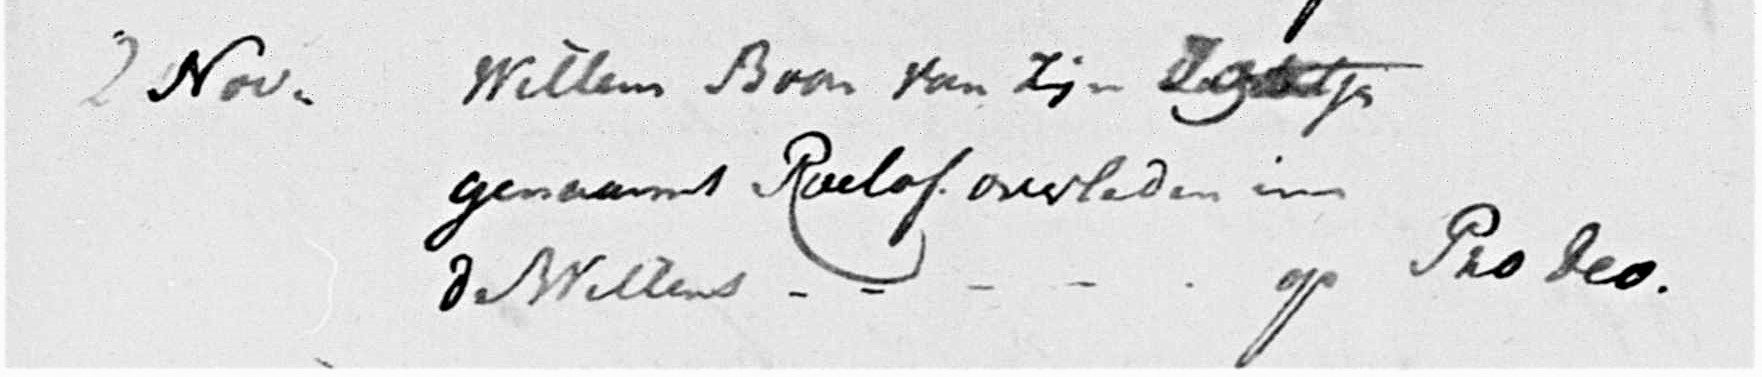 2 Nov. Willem Boon van zijn
genaamt Roelof. overleden inn
de Willens - - - - . op Pro deo.